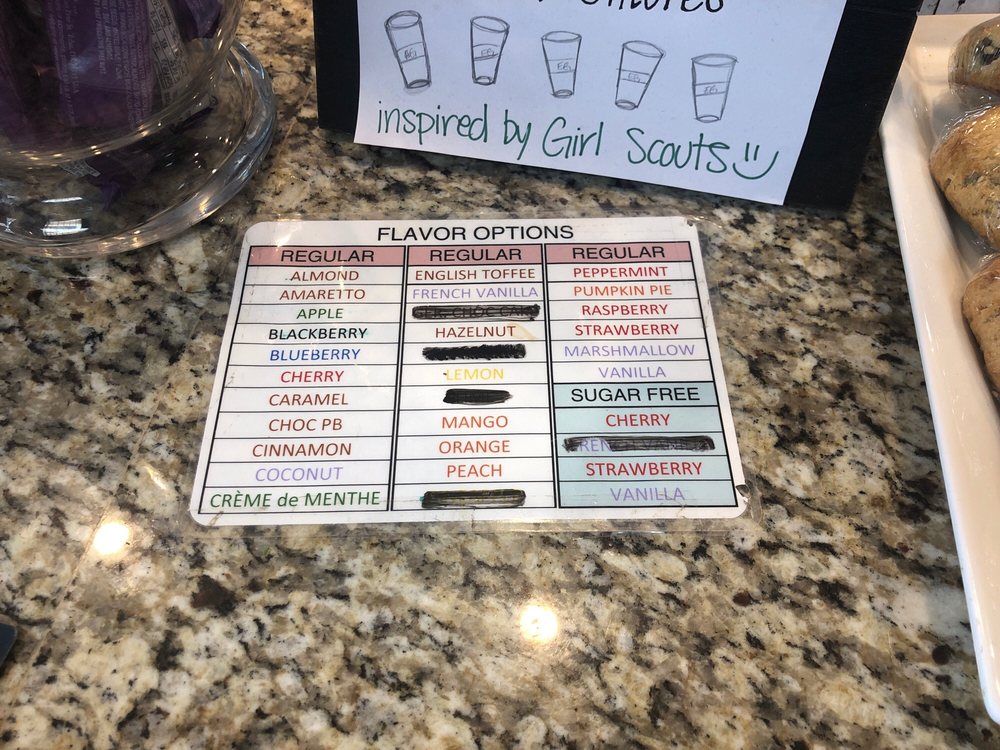 inspired by Girl Scouts
FLAVOR OPTIONS
REGULAR
ALMOND
AMARETTO
APPLE
BLACKBERRY
BLUEBERRY
CHERRY
CARAMEL
CHOC PB
CINNAMON
COCONUT
CRÈME de MENTHE
REGULAR
ENGLISH TOFFEE
FRENCH VANILLA
HAZELNUT
LEMON
MANGO
ORANGE
PEACH
REGULAR
PEPPERMINT
PUMPKIN PIE
RASPBERRY
STRAWBERRY
MARSHMALLOW
VANILLA
SUGAR FREE
CHERRY
STRAWBERRY
VANILLA